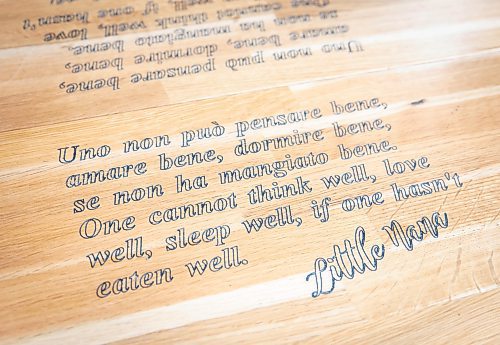 One cannot think well, love
well, sleep well, if one hasn't
Uno non può pensare bene,
amare bene, dormire bene,
se non ha mangiato bene.
Uno non può pensare bene,
amare bene, dormire bene,
se non ha mangiato bene.
One cannot think well, love
well, sleep well, if one hasn't
eaten well.
Little Nana